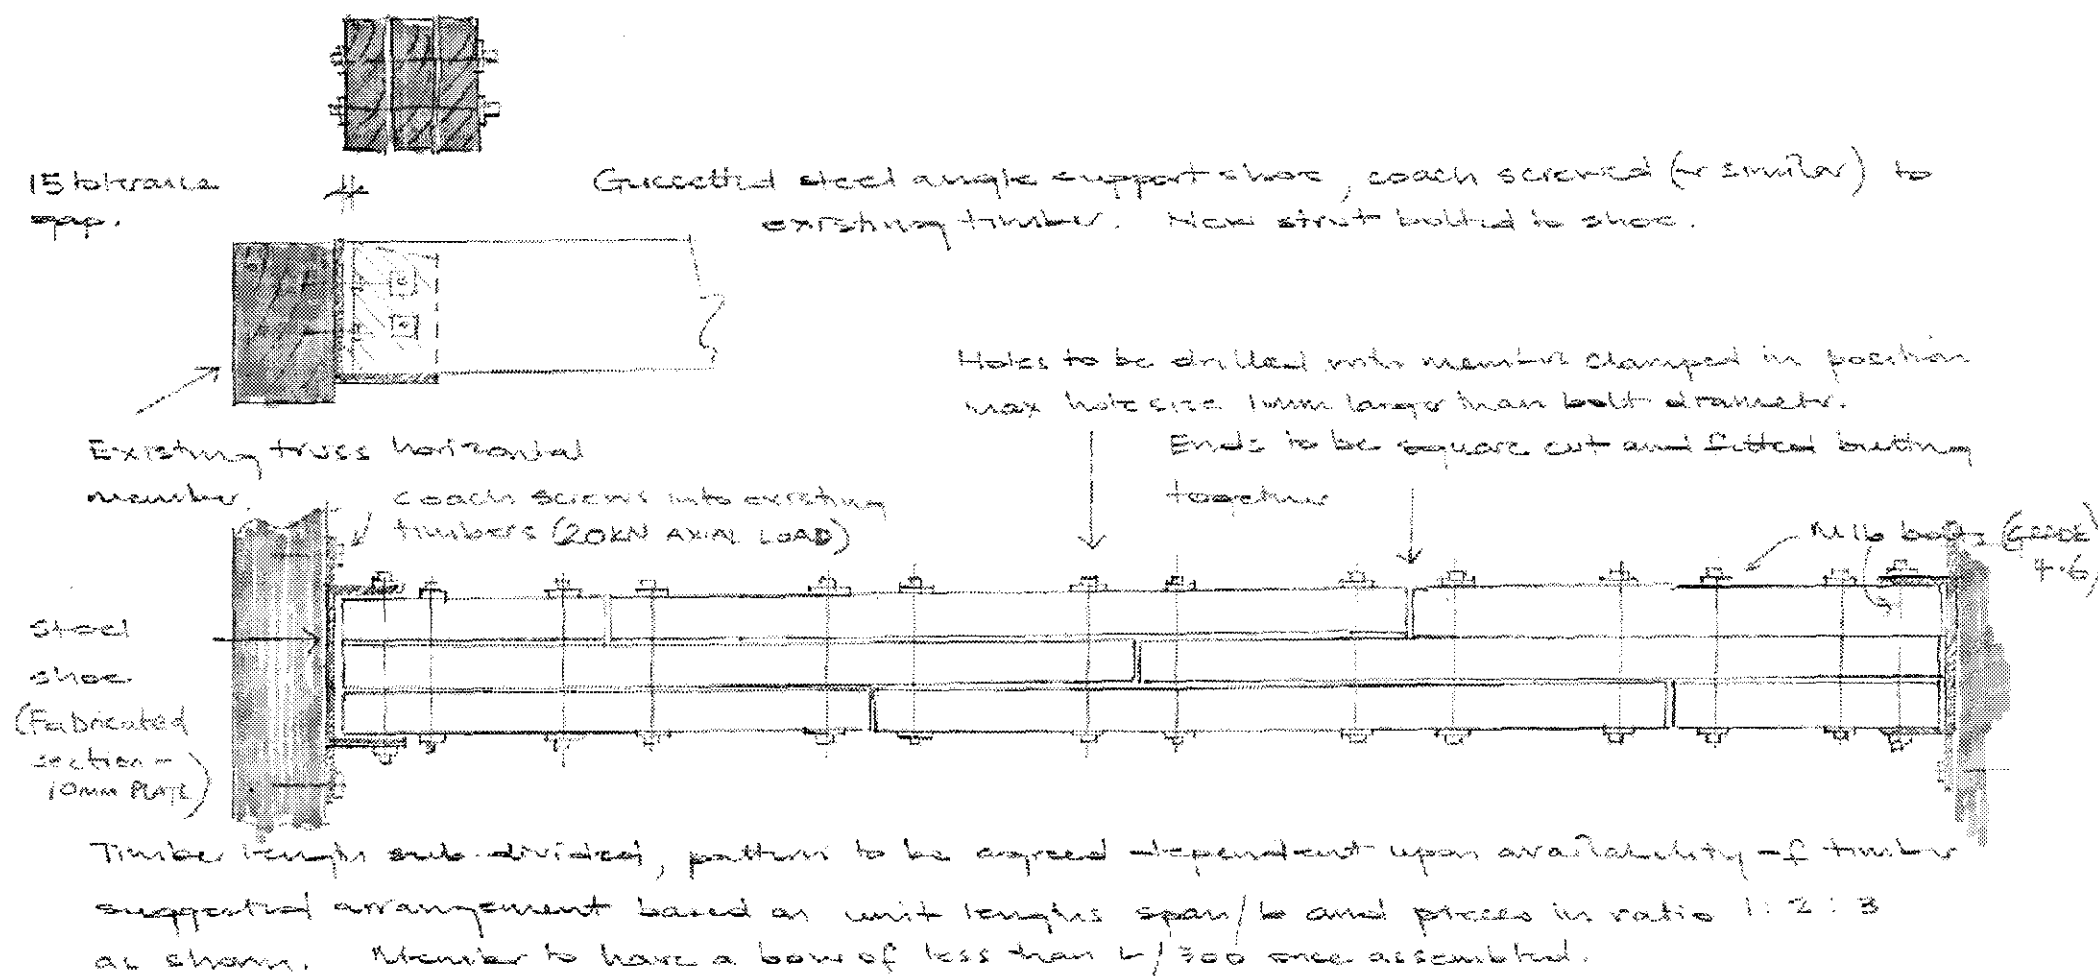 15 tolerance
gap.
Gussetted steel angle support shoe, coach screwed (or similar) to
existing timber. New strut bolted to shoe.
Holes to be drilled with members clamped in position
max hole size 1mm larger than bolt diameter.
Existing truss horizontal
member.
Ends to be square cut and fitted butting
together
coach screws into existing
timbers (20KN AXIAL LOAD)
M16 bolts (GRADE
4.6)
Steel
shoe
(Fabricated
section -
10MM PLATE)
Timber lengths sub-divided, pattern to be agreed dependent upon availability of timber
suggested arrangement based on unit lengths span/6 and pieces in ratio 1:2:3
as shown. Member to have a bow of less than L/300 once assembled.